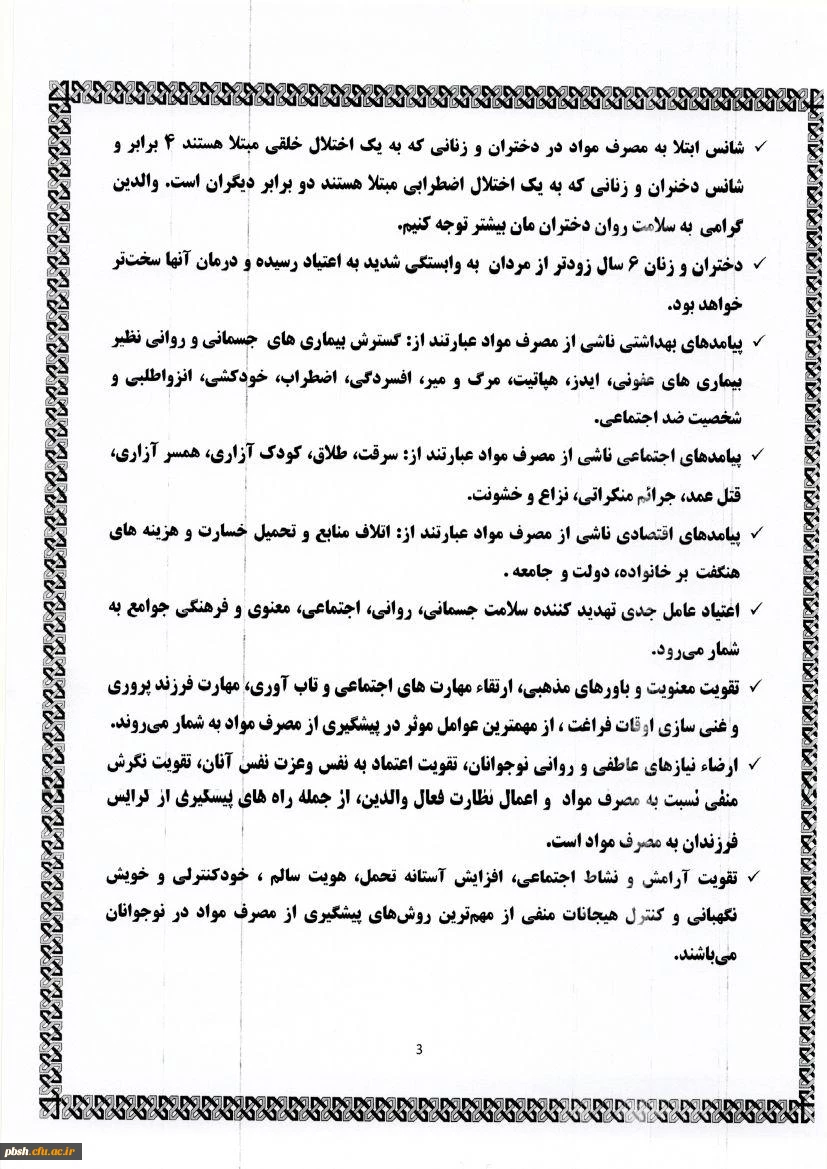 ✓ شانس ابتلا به مصرف مواد در دختران و زنانی که به یک اختلال خلقی مبتلا هستند ۴ برابر و
شانس دختران و زنانی که به یک اختلال اضطرابی مبتلا هستند دو برابر دیگران است. والدین
گرامی به سلامت روان دختران مان بیشتر توجه کنیم.
✓ دختران و زنان ۶ سال زودتر از مردان به وابستگی شدید به اعتیاد رسیده و درمان آنها سخت‌تر
خواهد بود.
✓ پیامدهای بهداشتی ناشی از مصرف مواد عبارتند از: گسترش بیماری های جسمانی و روانی نظیر
بیماری های عفونی، ایدز، هپاتیت، مرگ و میر، افسردگی، اضطراب، خودکشی، انزواطلبی و
شخصیت ضد اجتماعی.
✓ پیامدهای اجتماعی ناشی از مصرف مواد عبارتند از: سرقت، طلاق، کودک آزاری، همسر آزاری،
قتل عمد، جرائم منکراتی، نزاع و خشونت.
✓ پیامدهای اقتصادی ناشی از مصرف مواد عبارتند از: اتلاف منابع و تحمیل خسارت و هزینه های
هنگفت بر خانواده، دولت و جامعه .
✓ اعتیاد عامل جدی تهدید کننده سلامت جسمانی، روانی، اجتماعی، معنوی و فرهنگی جوامع به
شمار می‌رود.
✓ تقویت معنویت و باورهای مذهبی، ارتقاء مهارت های اجتماعی و تاب آوری، مهارت فرزند پروری
و غنی سازی اوقات فراغت ، از مهمترین عوامل موثر در پیشگیری از مصرف مواد به شمار می‌روند.
✓ ارضاء نیازهای عاطفی و روانی نوجوانان، تقویت اعتماد به نفس وعزت نفس آنان، تقویت نگرش
منفی نسبت به مصرف مواد و اعمال نظارت فعال والدین، از جمله راه های پیشگیری از گرایش
فرزندان به مصرف مواد است.
✓ تقویت آرامش و نشاط اجتماعی، افزایش آستانه تحمل، هویت سالم ، خودکنترلی و خویش
نگهبانی و کنترل هیجانات منفی از مهم‌ترین روش‌های پیشگیری از مصرف مواد در نوجوانان
می‌باشند.
3
pbsh.cfu.ac.ir